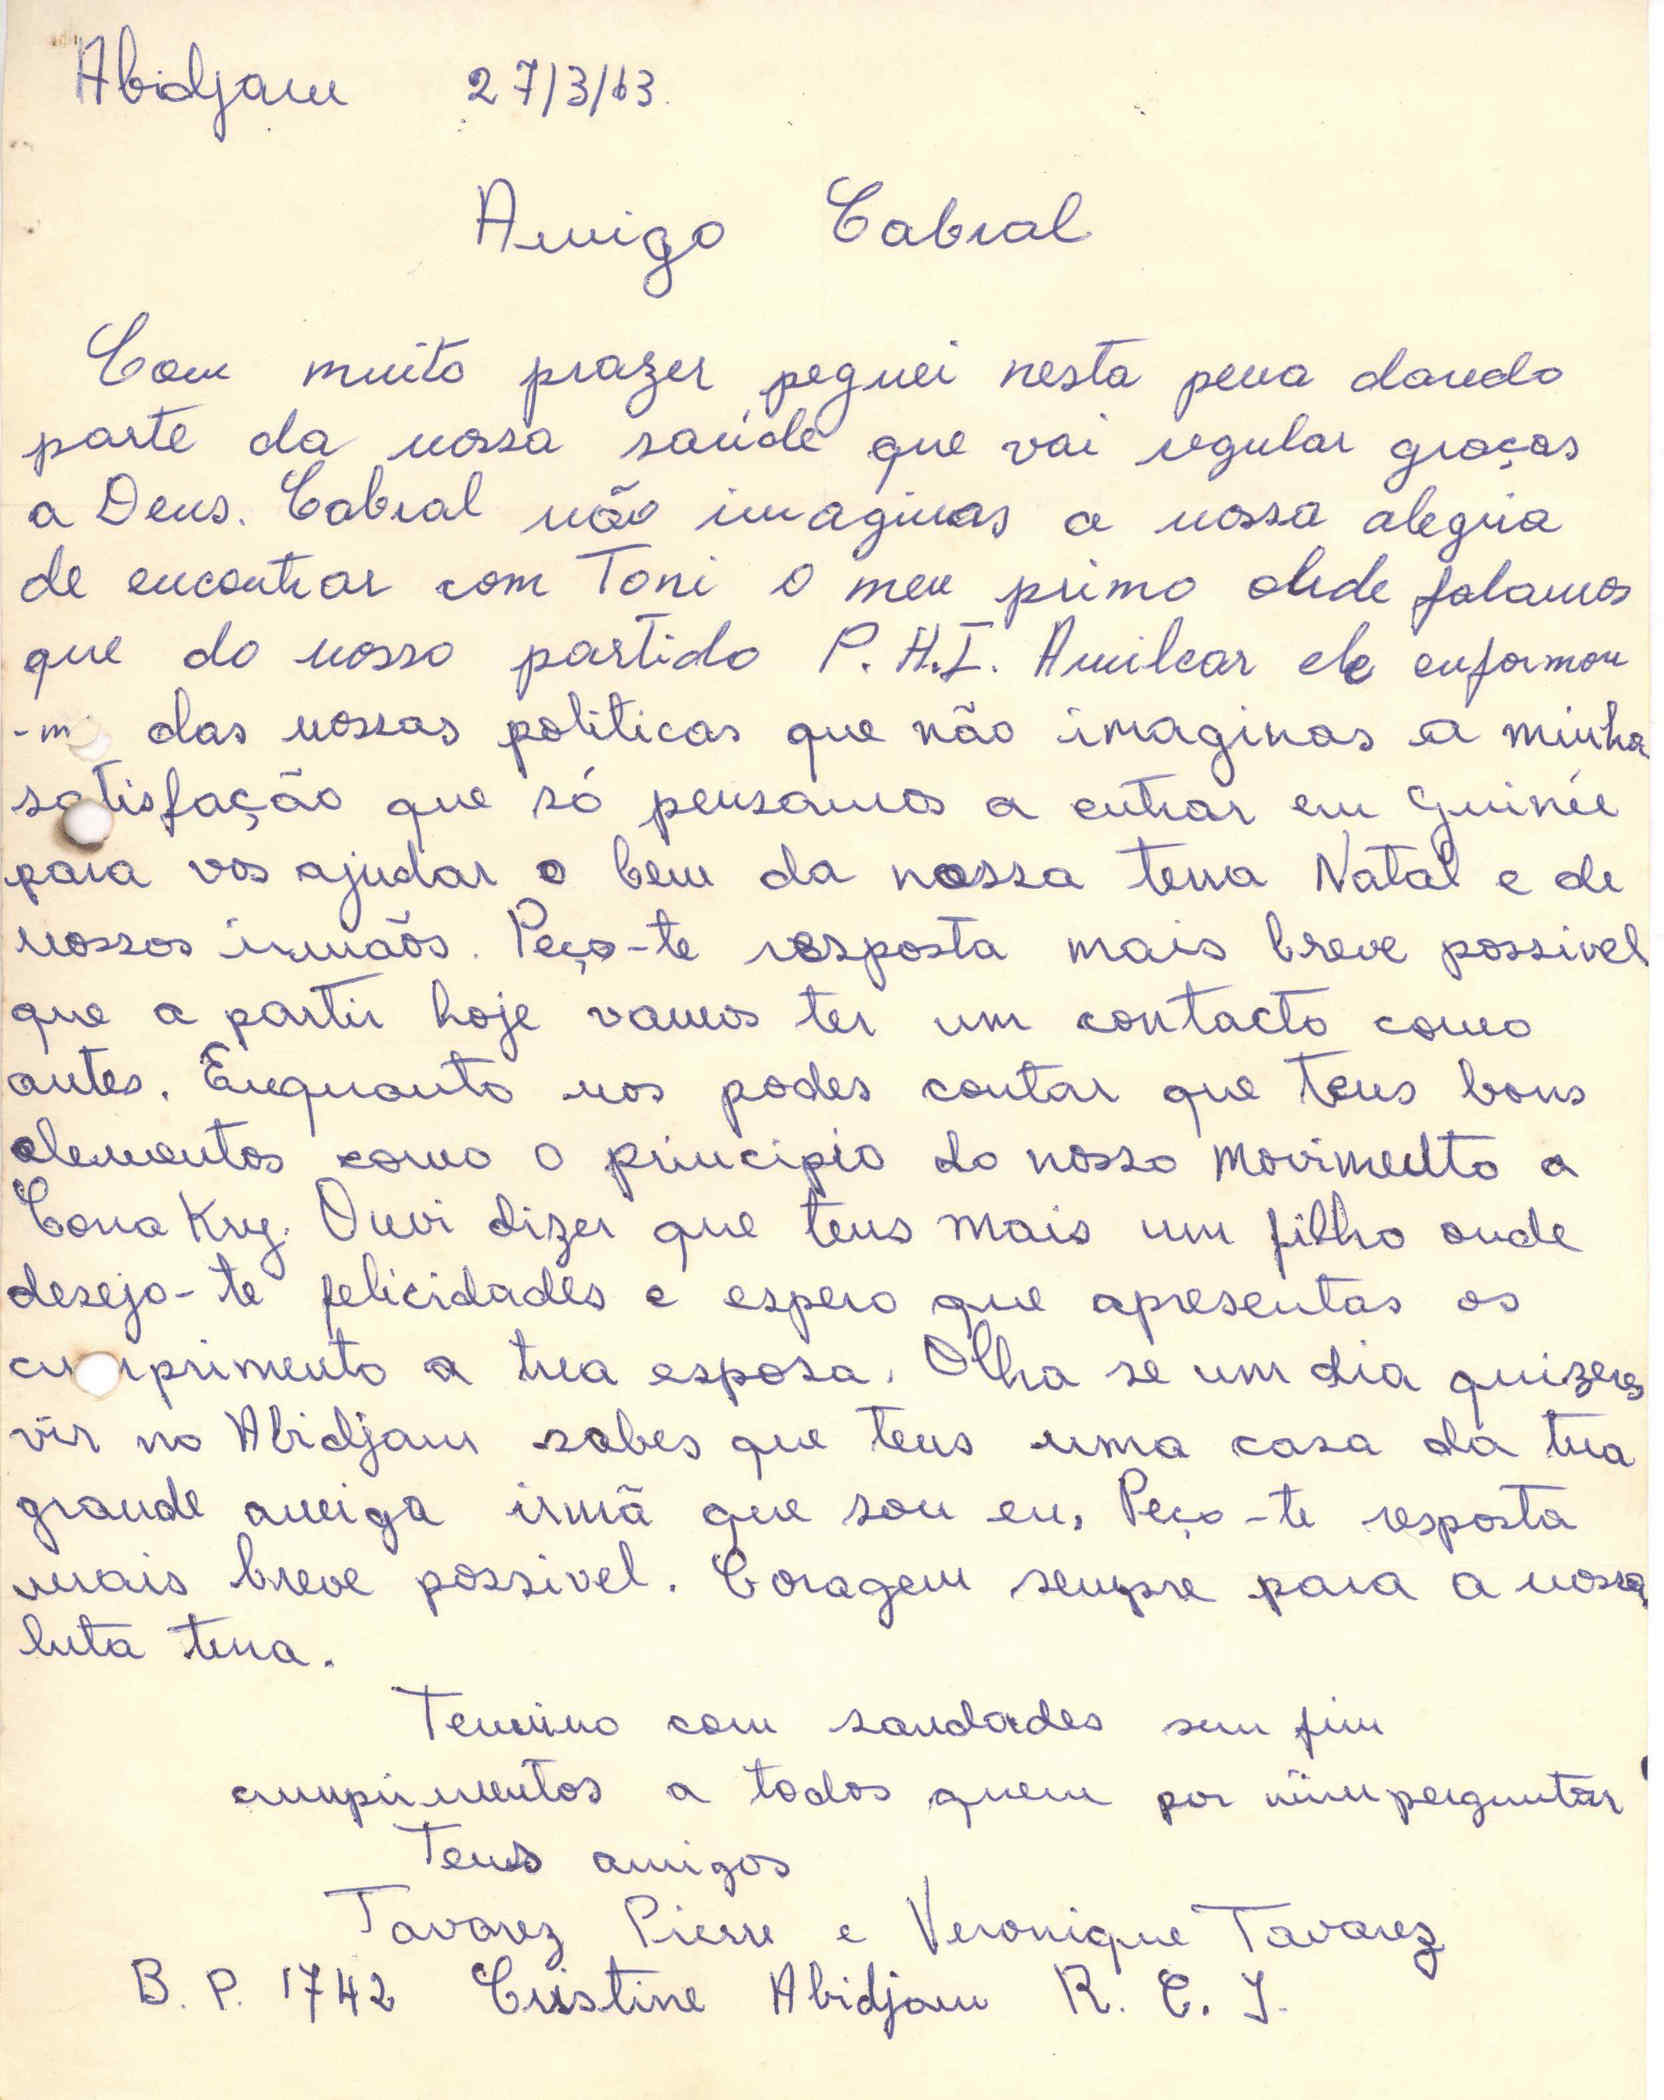 Abidjam 27/3/63.
Amigo Cabral
Com muito prazer peguei nesta pena dando
parte da nossa saúde que vai regular graças
a Deus. Cabral não imaginas a nossa alegria
de encontrar com Toni o meu primo onde falamos
que do nosso partido P.A.I. Amilcar ele enformou
-m das nossas politicas que não imaginas a minha
satisfação que só pensamos a entrar em Guinée
para vos ajudar o bem da nossa terra Natal e de
nossos irmãos. Peço-te resposta mais breve possivel
que a partir hoje vamos ter um contacto como
antes. Enquanto nos podes contar que tens bons
elementos como o principio do nosso movimento a
Cona Kry. Ouvi dizer que tens mais um filho onde
desejo-te felicidades e espero que apresentas os
cumprimento a tua esposa. Olha se um dia quizeres
vir no Abidjam sabes que tens uma casa da tua
grande amiga irmã que sou eu, Peço-te resposta
mais breve possivel. Coragem sempre para a nossa
luta terra.
Termino com saudades sem fim
cumprimentos a todos quem por mim perguntar
Teus amigos
Tavarez Pierre e Veronique Tavarez
B. P. 1742 Cristine Abidjam R. C. I.